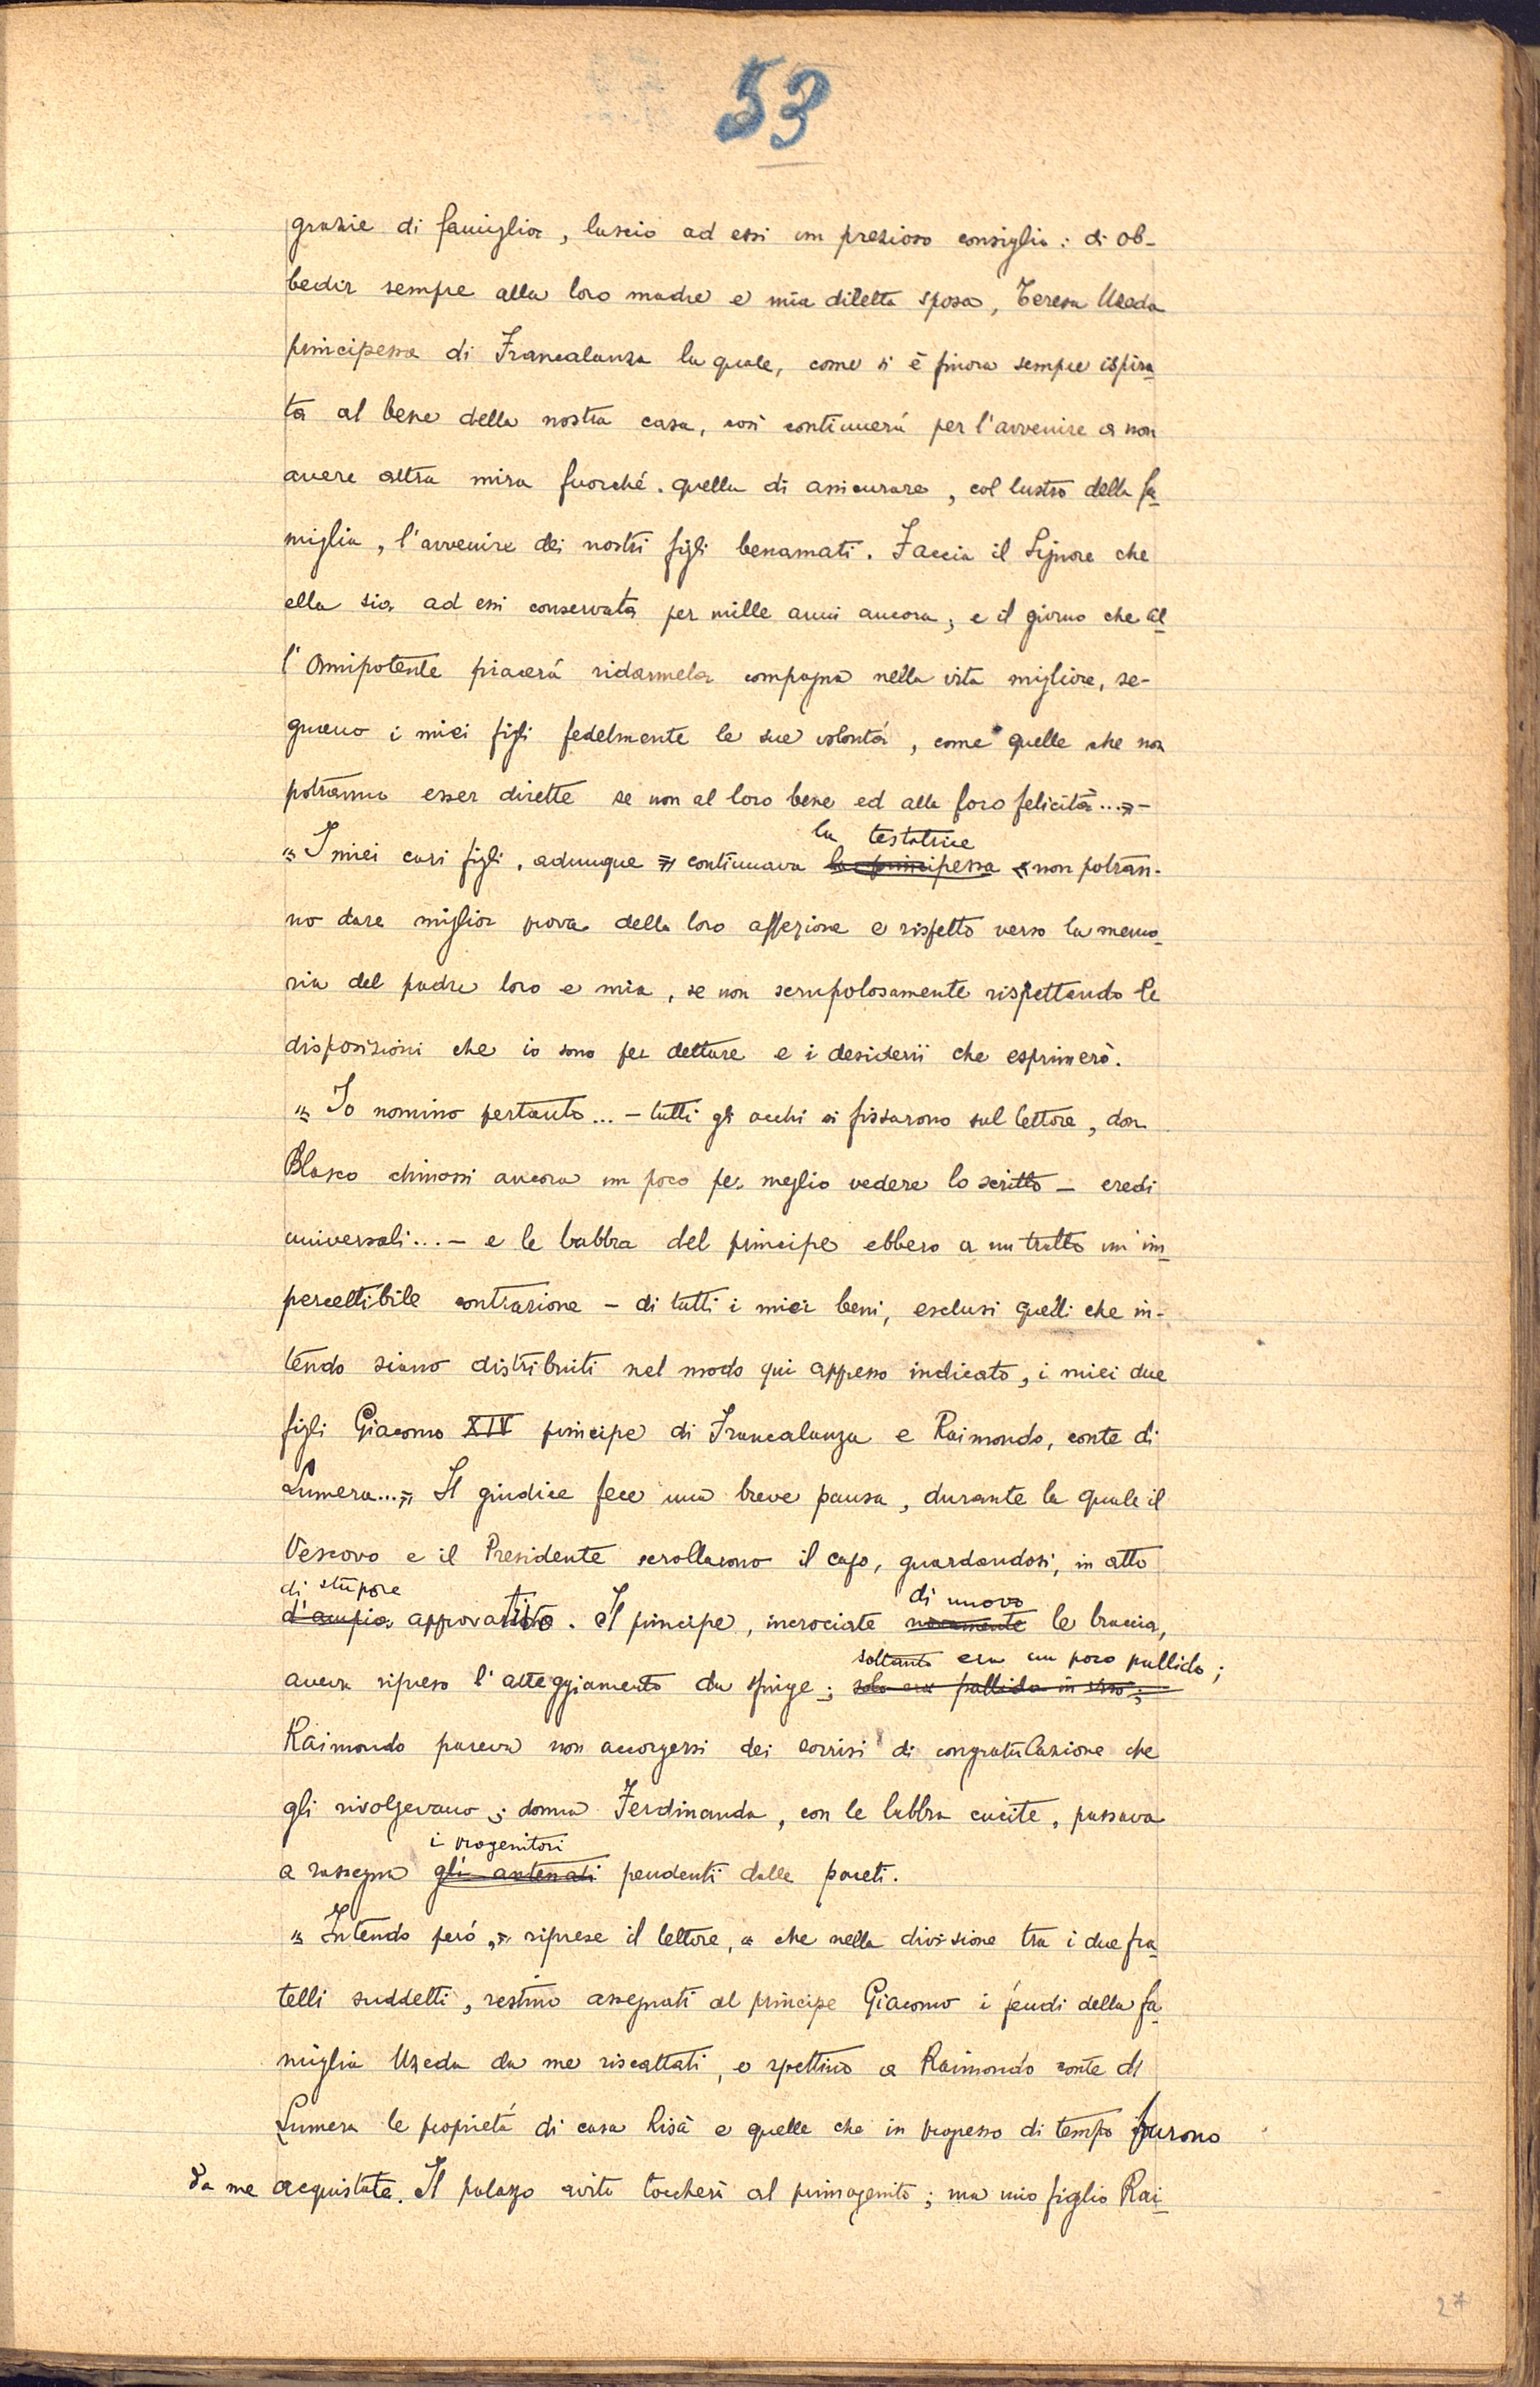 53
grazie di famiglia, lascio ad essi un prezioso consiglio: di ob-
bedir sempre alla loro madre e mia diletta sposa, Teresa Uzeda
principessa di Francalanza la quale, come si è finora sempre ispira-
ta al bene della nostra casa, così continuerà per l'avvenire a non
avere altra mira fuorché quella di assicurare, col lustro della fa-
miglia, l'avvenire dei nostri figli benamati. Faccia il Signore che
ella sia ad essi conservata per mille anni ancora, e il giorno che al-
l'Onnipotente piacerà ridarmela compagna nella vita migliore, se-
guano i miei figli fedelmente le sue volontà, come quelle che non
potranno esser dirette se non al loro bene ed alla loro felicità...» —
la testatrice
«I miei cari figli, adunque» continuava la principessa «non potran-
no dare miglior prova della loro affezione e rispetto verso la memo-
ria del padre loro e mia, se non scrupolosamente rispettando le
disposizioni che io sono per dettare e i desiderii che esprimerò.
«Io nomino pertanto... — tutti gli occhi si fissarono sul lettore, don
Blasco chinossi ancora un poco per meglio vedere lo scritto — eredi
universali... — e le labbra del principe ebbero a un tratto un'im-
percettibile contrazione — di tutti i miei beni, esclusi quelli che in-
tendo siano distribuiti nel modo qui appresso indicato, i miei due
figli Giacomo XIV principe di Francalanza e Raimondo, conte di
Lumera...» Il giudice fece una breve pausa, durante la quale il
Vescovo e il Presidente scrollarono il capo, guardandosi, in atto
di stupore
di nuovo
d'ampia approvativo. Il principe, incrociate novamente le braccia,
soltanto era un poco pallido;
aveva ripreso l'atteggiamento da sfinge; solo era pallido in viso;
Raimondo pareva non accorgersi dei sorrisi di congratulazione che
gli rivolgevano; donna Ferdinanda, con le labbra cucite, passava
i progenitori
a rassegna gli antenati pendenti dalle pareti.
«Intendo però,» riprese il lettore, «che nella divisione tra i due fra-
telli suddetti, restino assegnati al principe Giacomo i feudi della fa-
miglia Uzeda da me riscattati, e spettino a Raimondo conte di
Lumera le proprietà di casa Risà e quelle che in progresso di tempo furono
da me acquistate. Il palazzo avito toccherà al primogenito; ma mio figlio Rai-
27